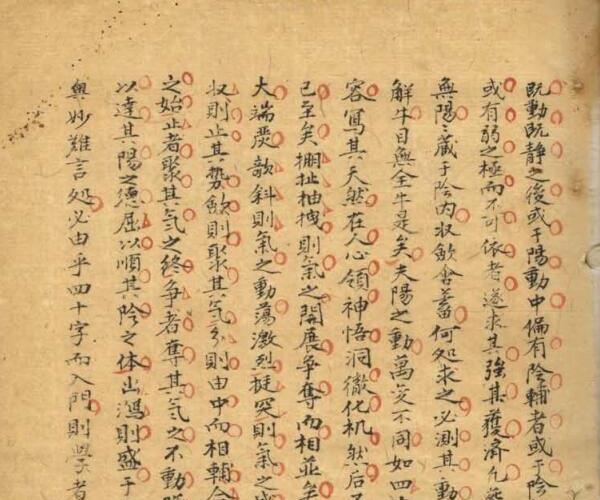 既動既静之後或于陽動中偏有陰輔者或于陰
或有弱之極而不可依者遂求其強其獲濟乩
無陽〻蔵于陰内収斂含蓄何処求之必測其動
解牛目無全牛是矣夫陽之動萬变不同如四
容寫其天然在人心領神悟洞徹化机然后
已至矣掤扯柚拽則氣之開展争奪而相並
大端煲歆斜則氣之動蕩激烈挺突則氣之
収則止其势斂則聚其氣分則由中而相輔合
之始止者聚其氣之終争者奪其氣之不動
以達其陽之德屈以順其陰之体出鴻則盛于
奥妙難言処必由乎四十字而入門則學者